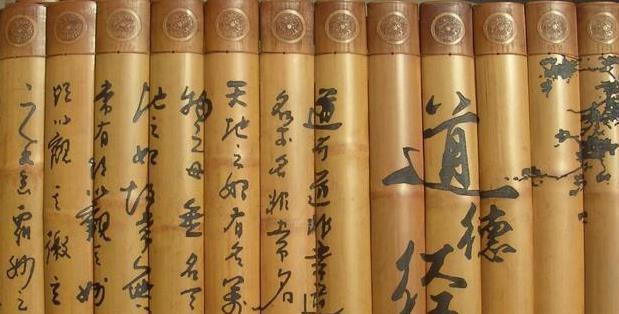 道德经
道可道非常道
名可名非常名
天地之始有名萬
物之母無名天
地之始故常無
常有欲以觀其妙
欲以觀其徼之
之又玄衆妙之